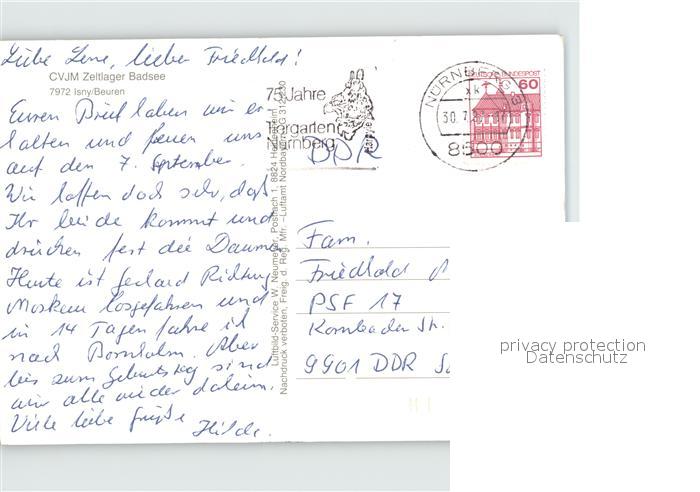 Liebe Lene, lieber Friedhold!
CVJM Zeltlager Badsee
7972 Isny/Beuren
Euren Brief haben wir er-
halten und freuen uns
auf den 7. September.
Wir hoffen doch sehr, daß
Ihr beide kommt und
drücken fest die Daumen
Heute ist Gerhard Richtung
Moskau losgefahren und
in 14 Tagen fahre ich
nach Bornholm. Aber
bis zum Geburtstag sind
wir alle wieder daheim.
Viele liebe Grüße
Hilde.
Luftbild-Service W. Neumeyer, Postfach 1, 8824 Heidenheim
Nachdruck verboten, Freig. d. Reg. Mfr. -Luftamt Nordbayern-
75 Jahre
Tiergarten
Nürnberg
NÜRNBERG
30.7.
8500
DEUTSCHE BUNDESPOST
60
DDR
Fam.
Friedhold
PSF 17
9901 DDR
privacy protection
Datenschutz